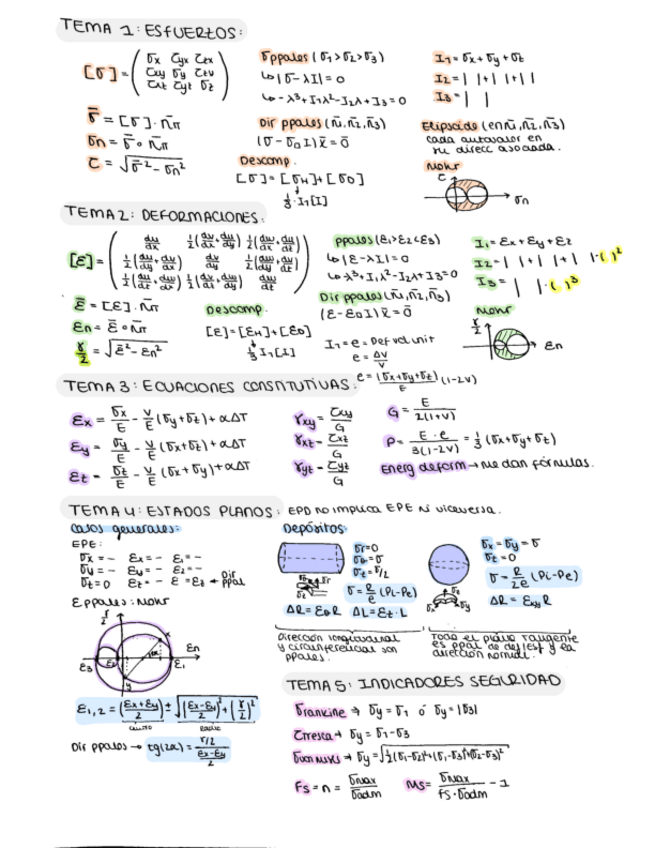 TEMA 1: ESFUERZOS:
[σ] = ( σx τyx τzx
τxy σy τzy
τxz τyz σz )
σ̄ = [σ] · n̄π
σn = σ̄ ∘ n̄π
τ = √(σ̄² - σn²)
σppales (σ1 > σ2 > σ3)
↳ |σ - λI| = 0
↳ -λ³ + I1λ² - I2λ + I3 = 0
Dir ppales (n̄1, n̄2, n̄3)
(σ - σ0I) x̄ = 0̄
Descomp.
[σ] = [σH] + [σD]
↓
1/3 · I1[I]
I1 = σx + σy + σz
I2 = | | + | | + | |
I3 = | |
Elipsoide (en n̄1, n̄2, n̄3)
cada autovalor en
su direcc asociada.
Mohr
τ
σn
TEMA 2: DEFORMACIONES:
[ε] = ( du/dx 1/2(du/dy + dv/dx) 1/2(dw/dx + du/dz)
dv/dy
dw/dz )
ε̄ = [ε] · n̄π
εn = ε̄ ∘ n̄π
γ/2 = √(ε̄² - εn²)
Descomp.
[ε] = [εH] + [εD]
↓
1/3 I1[I]
ppales (ε1 > ε2 < ε3)
↳ |ε - λI| = 0
↳ λ³ + I1λ² - I2λ + I3 = 0
Dir ppales (n̄1, n̄2, n̄3)
(ε - ε0I) x̄ = 0̄
I1 = e = Def vol unit
e = ΔV/V
e = (σx + σy + σz)/E (1-2ν)
I1 = εx + εy + εz
I2 = | | + | | + | | · ( )²
I3 = | | · ( )³
Mohr
γ/2
εn
TEMA 3: ECUACIONES CONSITUTIVAS:
εx = σx/E - ν/E (σy + σz) + αΔT
εy = σy/E - ν/E (σx + σz) + αΔT
εz = σz/E - ν/E (σx + σy) + αΔT
γxy = τxy/G
γxz = τxz/G
γyz = τyz/G
G = E/2(1+ν)
P = E · e/3(1-2ν) = 1/3 (σx + σy + σz)
Energ deform → me dan fórmulas.
TEMA 4: ESTADOS PLANOS: EPD no implica EPE ni viceversa.
Casos generales:
EPE:
σx = - εx = - ε1 = -
σy = - εy = - ε2 = -
σz = 0 εz = - ε = εz → Dir ppal
Eppales: Mohr
γ/2
εn
ε3 ε2 ε1
x
2α
y
ε1,2 = (εx + εy/2) ± √((εx - εy/2)² + (γ/2)²)
centro radio
Dir ppales → tg(2α) = γ/2 / (εx - εy/2)
Depósitos:
σr = 0
σθ = σ
σz = σ/2
σ = R/e (Pi - Pe)
ΔR = εθ R ΔL = εz · L
Dirección longitudinal
y circunferencial son
ppales.
σx = σy = σ
σz = 0
σ = R/2e (Pi - Pe)
ΔR = εxy R
Todo el plano tangente
es ppal de def/esf y la
dirección normal.
TEMA 5: INDICADORES SEGURIDAD
σrankine → σy = σ1 ó σy = |σ3|
σtresca → σy = σ1 - σ3
σvon mises → σy = √(1/2(σ1-σ2)² + (σ1-σ3)² + (σ2-σ3)²)
Fs = n = σmax/σadm
Ms = σmax/(fs · σadm) - 1